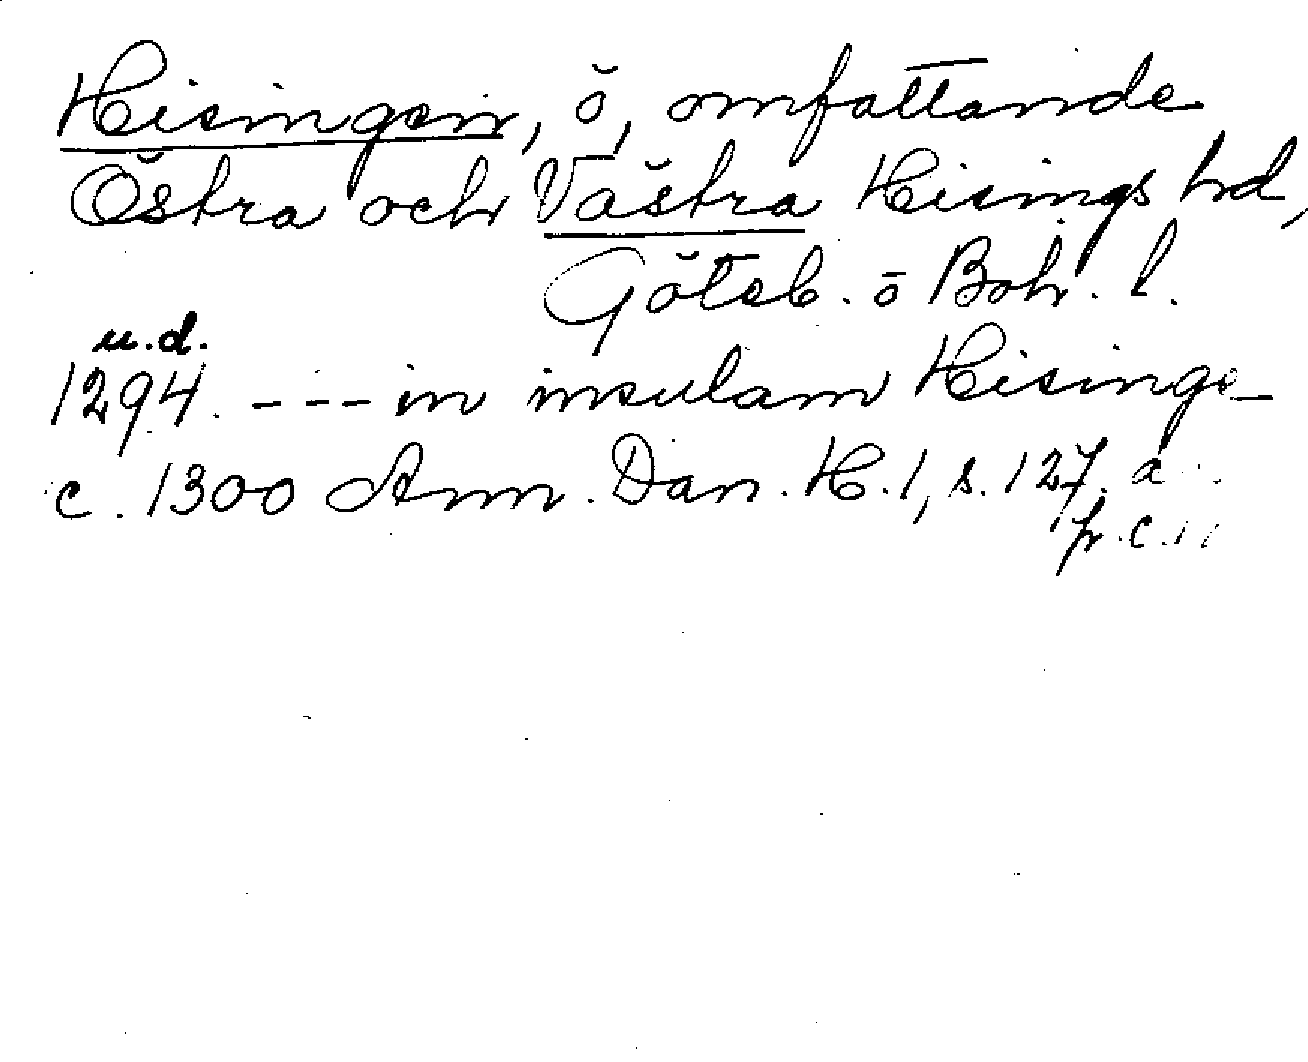 Hisingen, ö, omfattande
Östra och Västra Hisings hd,
Göteb. o Boh. l.
u.d.
1294. --- in insulam Hisinge-
c. 1300 Ann. Dan. H. 1, s. 127. a
pr. c.